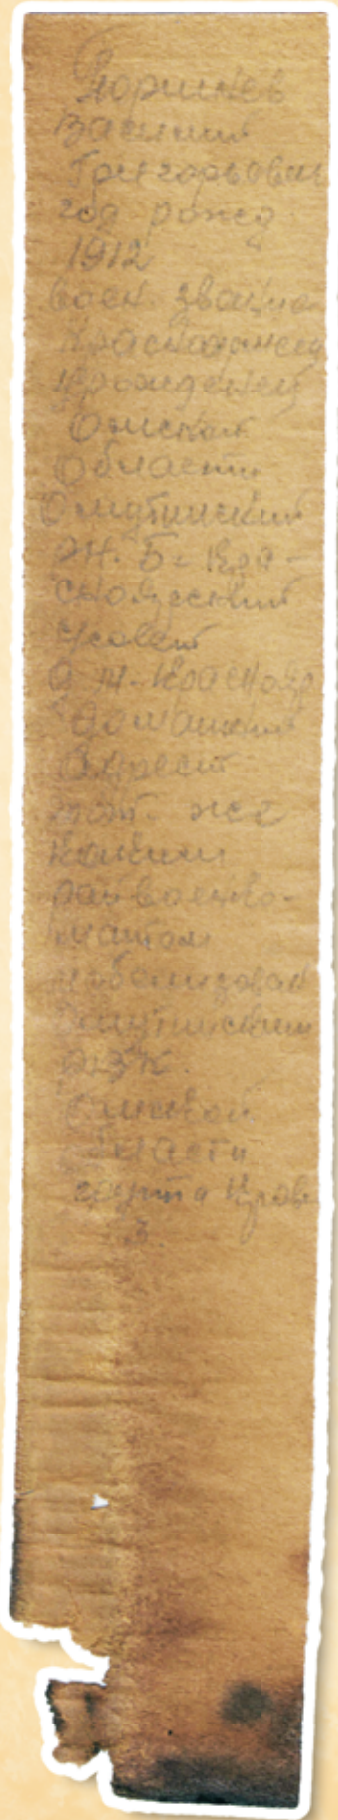 Василий
Григорьевич
год рожд
1912
воен звание
Красноармеец
Урожденец
Омский
Области
Омутинский
рн. Б. Кра-
сноярский
с/совет
д
Домашний
Адрес
тот же
Каким
райвоенко-
матом
мобилизован
Омутинским
РВК.
Омской
Области
группа Кров
3.